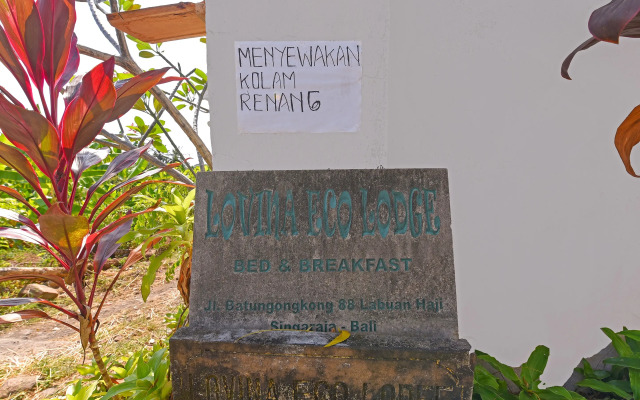 MENYEWAKAN
KOLAM
RENANG
LOVINA ECO LODGE
BED & BREAKFAST
Jl. Batungongkong 88 Labuan Haji
Singaraja - Bali
LOVINA ECO LODGE